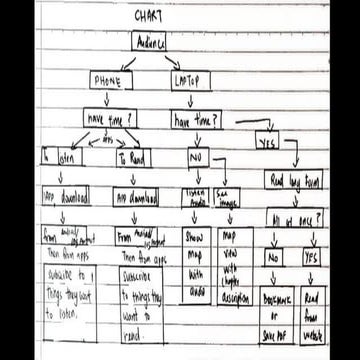 CHART
Audience
PHONE
LAPTOP
have time?
have time?
APPS
YES
To listen
To Read
NO
Read long form
APP download
APP download
listen Audio
See images
All at once?
from
From
Then from apps
Then from apps
Show
Map
with
audio
Map
view
with
chapter
description
NO
YES
subscribe to
Things they want
to listen.
Subscribe
to things they
want to
read.
Bookmark
or
Save PDF
Read
from
website